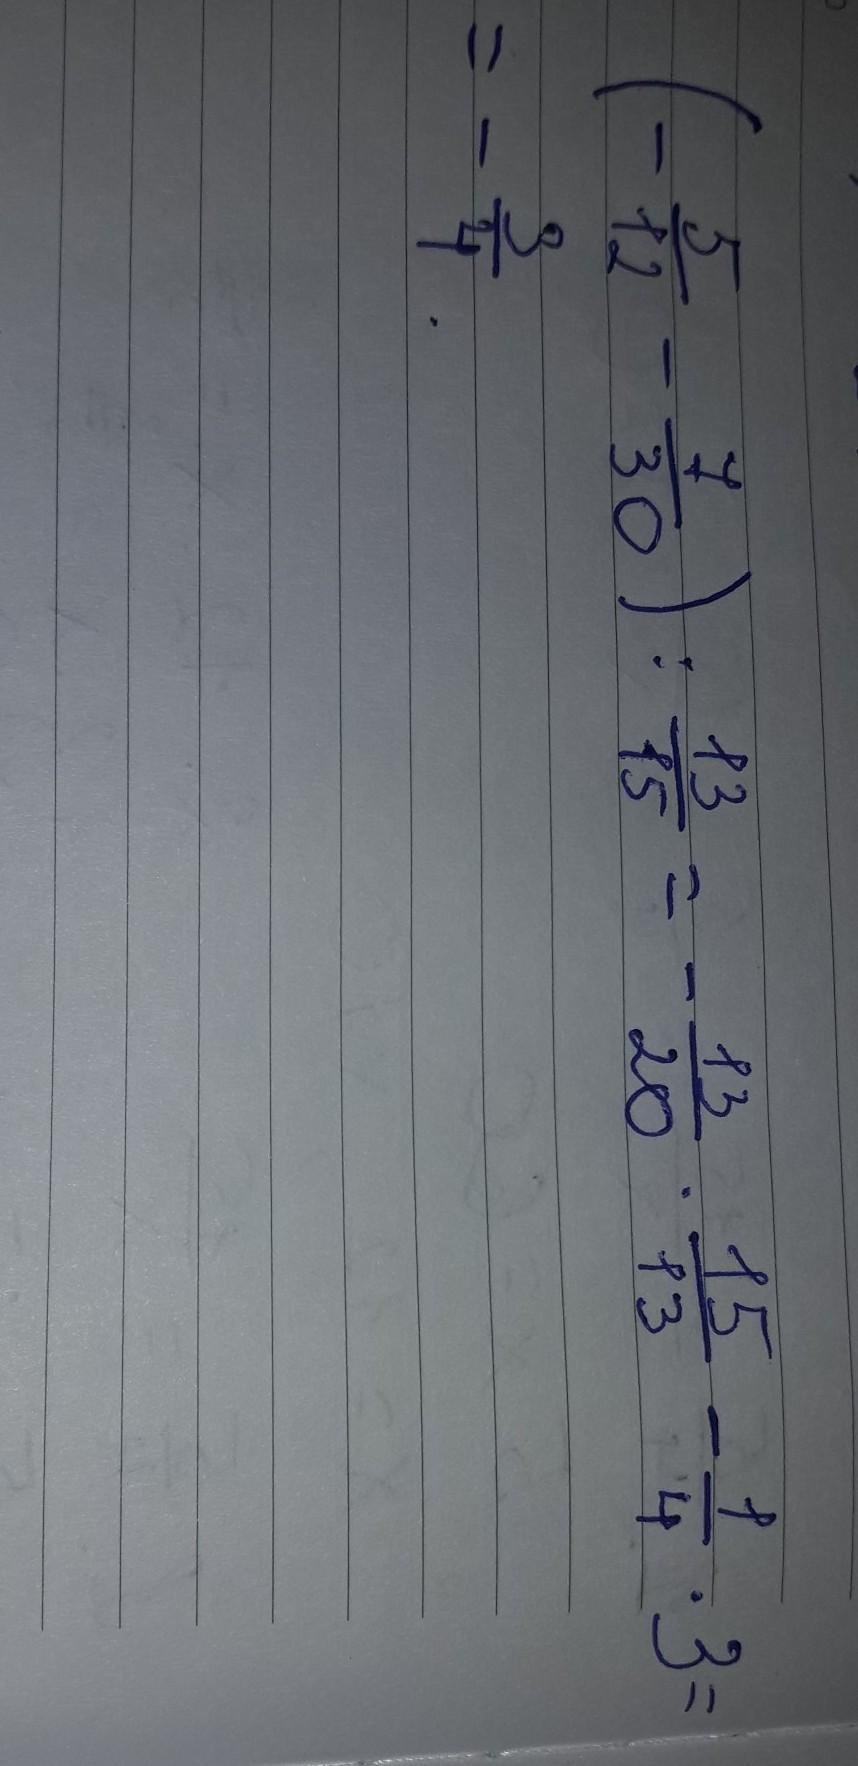 (- 5/12 - 7/30) : 13/15 = - 13/20 · 15/13 - 1/4 · 3 =
= - 3/4 .